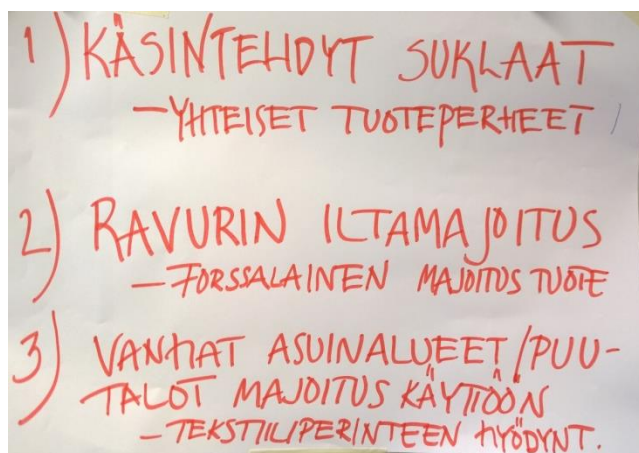 1) KÄSINTEHDYT SUKLAAT
- YHTEISET TUOTEPERHEET
2) RAVURIN ILTAMAJOITUS
- FORSSALAINEN MAJOITUS TUOTE
3) VANHAT ASUINALUEET/PUU-
TALOT MAJOITUS KÄYTTÖÖN
- TEKSTIILIPERINTEEN HYÖDYNT.